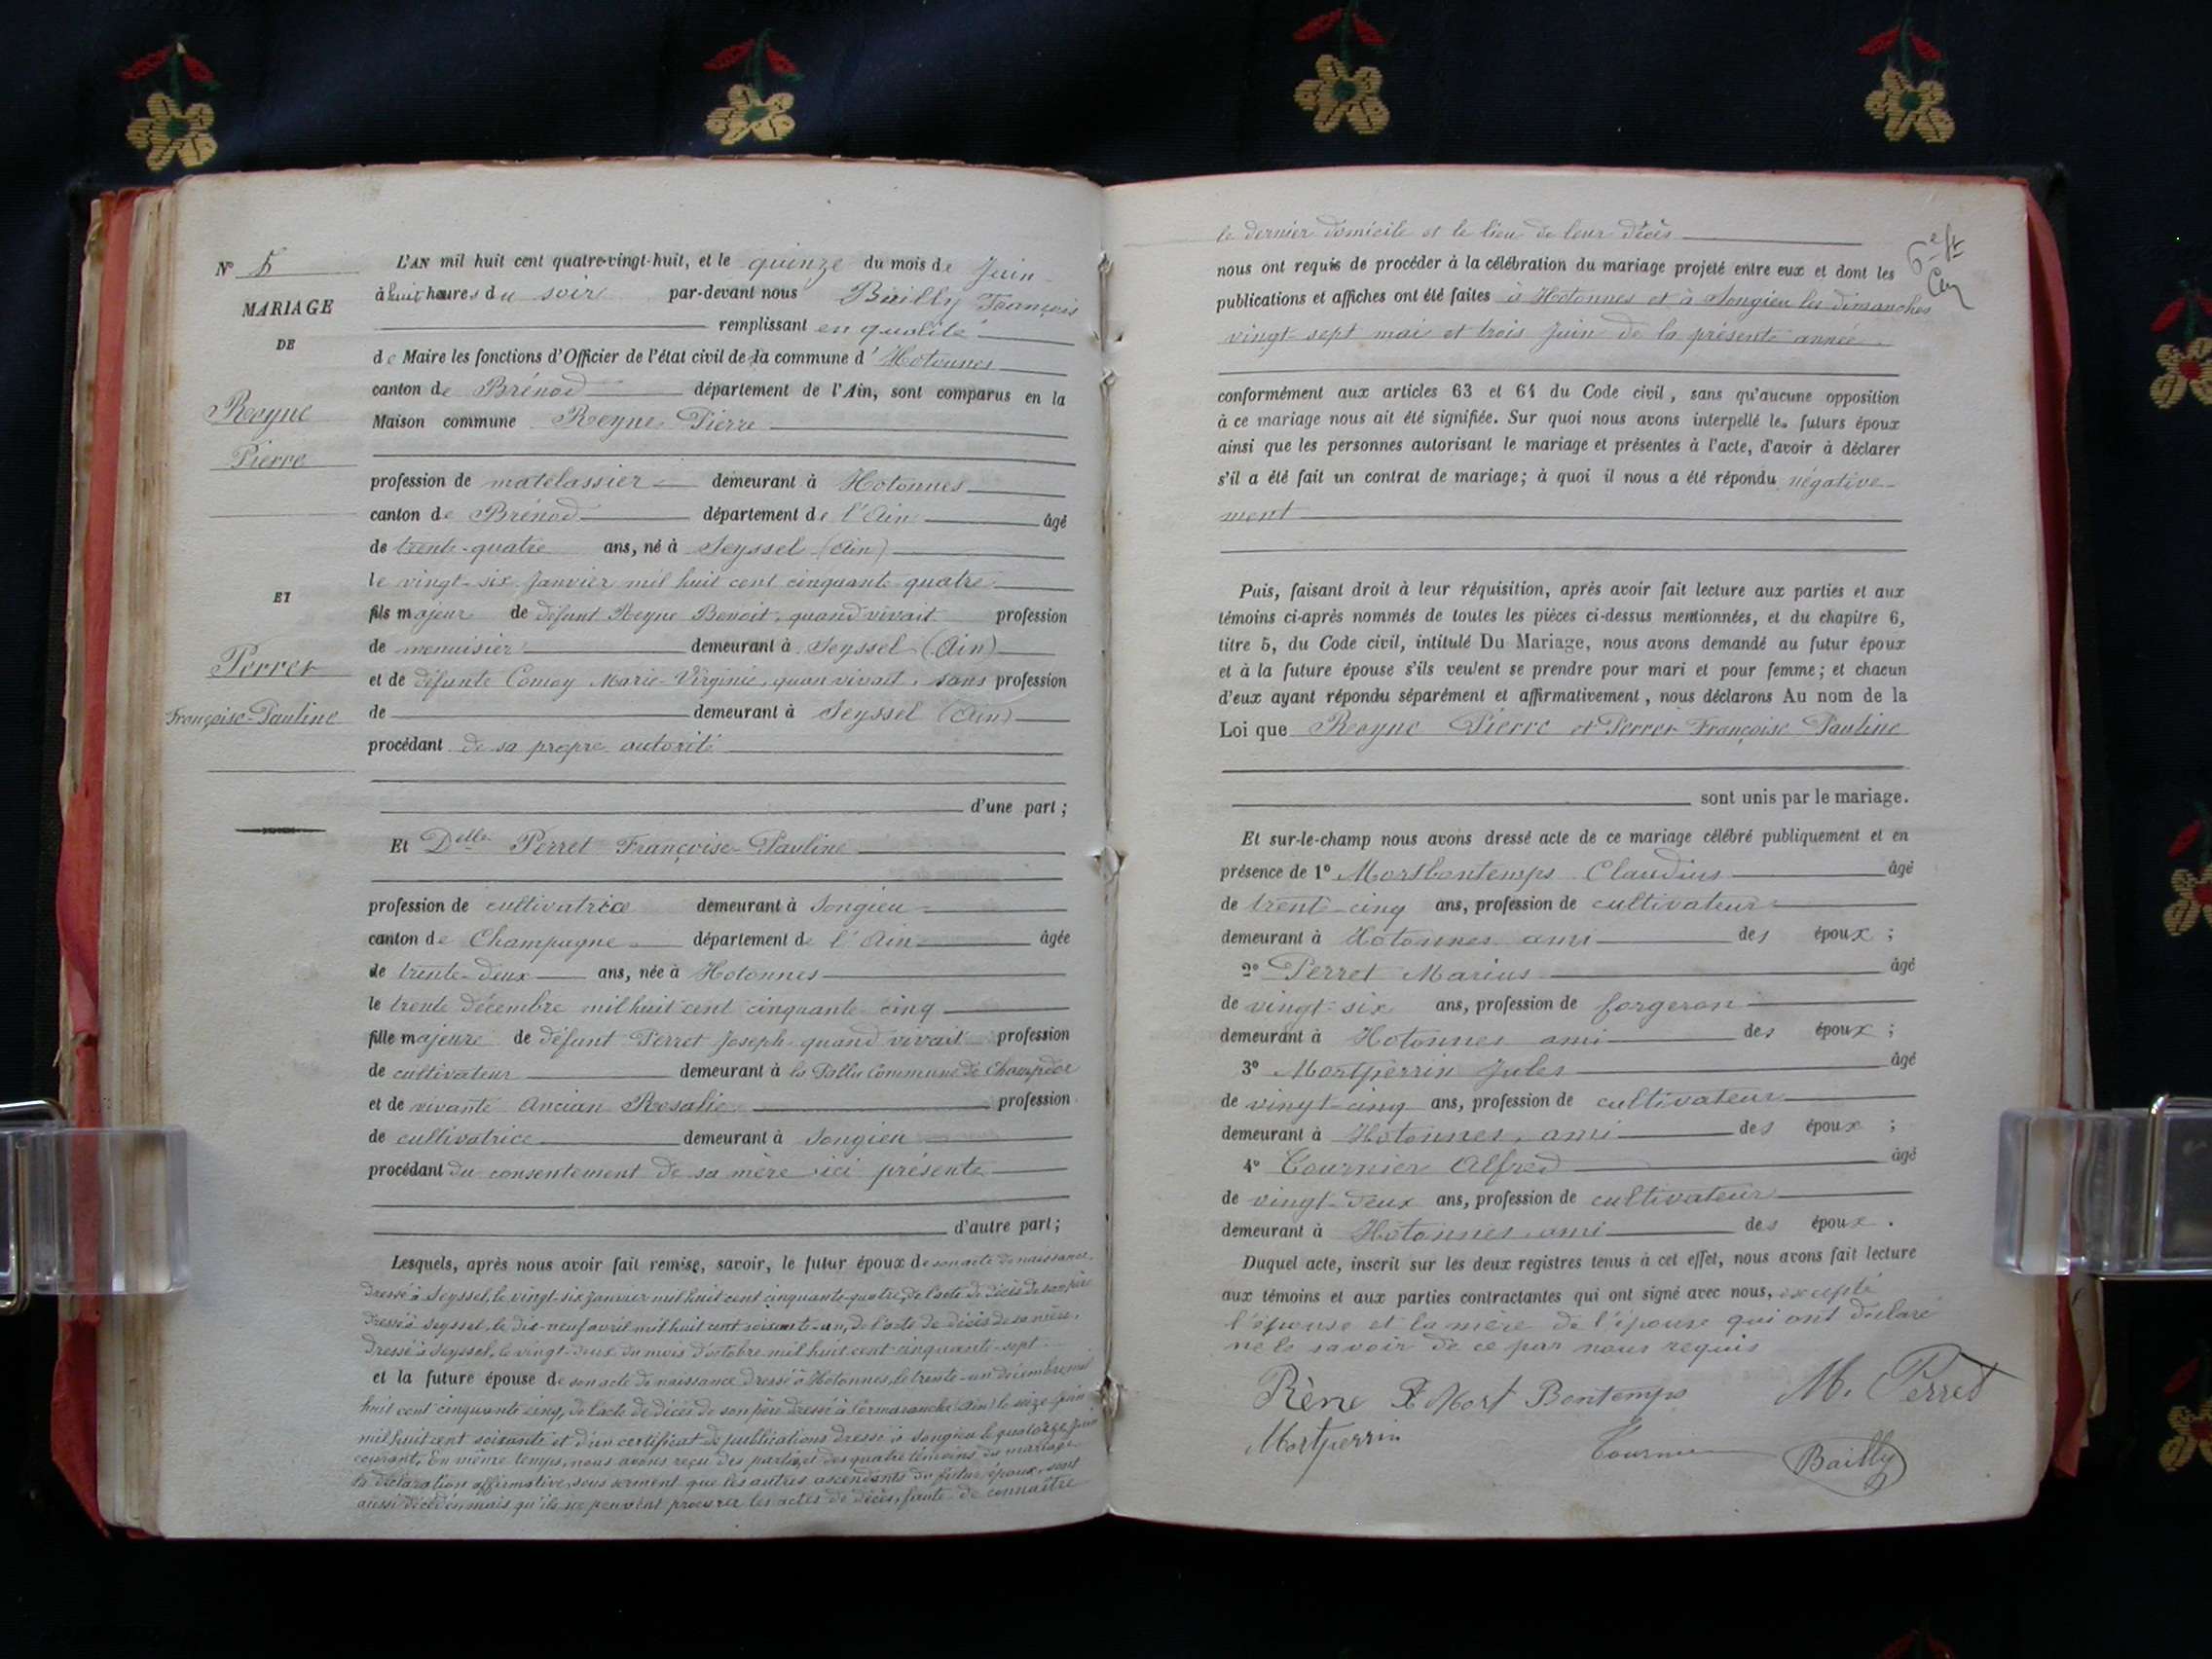 N° 5
MARIAGE
DE
Reyne
Pierre
ET
Perret
Françoise-Pauline
L'AN mil huit cent quatre-vingt-huit, et le quinze du mois de Juin
à huit heures du soir par-devant nous Bailly François
remplissant en qualité
de Maire les fonctions d'Officier de l'état civil de la commune d'Hotonnes
canton de Brénod département de l'Ain, sont comparus en la
Maison commune Reyne Pierre
profession de matelassier demeurant à Hotonnes
canton de Brénod département de l'Ain âgé
de trente-quatre ans, né à Seyssel (Ain)
le vingt-six Janvier mil huit cent cinquante-quatre
fils majeur de défunt Reyne Benoit, quand vivait profession
de menuisier demeurant à Seyssel (Ain)
et de défunte Comoy Marie-Virginie, quan vivait, sans profession
de demeurant à Seyssel (Ain)
procédant de sa propre autorité
d'une part ;
Et Delle Perret Françoise-Pauline
profession de cultivatrice demeurant à Songieu
canton de Champagne département de l'Ain âgée
de trente-deux ans, née à Hotonnes
le trente décembre mil huit cent cinquante-cinq
fille majeure de défunt Perret Joseph quand vivait profession
de cultivateur demeurant à la Commune de Champdor
et de vivante Ancian Rosalie profession
de cultivatrice demeurant à Songieu
procédant du consentement de sa mère ici présente
d'autre part ;
Lesquels, après nous avoir fait remise, savoir, le futur époux de son acte de naissance,
dressé à Seyssel, le vingt-six janvier mil huit cent cinquante-quatre, de l'acte de décès de son père
dressé à Seyssel, le dix-neuf avril mil huit cent soixante-un, de l'acte de décès de sa mère,
dressé à Seyssel, le vingt-deux du mois d'octobre mil huit cent cinquante-sept
et la future épouse de son acte de naissance dressé à Hotonnes, le trente-un décembre mil
huit cent cinquante cinq, de l'acte de décès de son père dressé à Cormaranche (Ain) le seize juin
mil huit cent soixante et d'un certificat de publications dressé à Songieu le quatorze Juin
courant. En même temps, nous avons reçu des parties et des quatre témoins du mariage
la déclaration affirmative sous serment que les autres ascendants du futur époux, sont
aussi décédés, mais qu'ils ne peuvent procurer les actes de décès, faute de connaître
le dernier domicile et le lieu de leur décès
nous ont requis de procéder à la célébration du mariage projeté entre eux et dont les
publications et affiches ont été faites à Hotonnes et à Songieu les dimanches
vingt-sept mai et trois Juin de la présente année
conformément aux articles 63 et 64 du Code civil, sans qu'aucune opposition
à ce mariage nous ait été signifiée. Sur quoi nous avons interpellé les futurs époux
ainsi que les personnes autorisant le mariage et présentes à l'acte, d'avoir à déclarer
s'il a été fait un contrat de mariage ; à quoi il nous a été répondu négative-
ment
Puis, faisant droit à leur réquisition, après avoir fait lecture aux parties et aux
témoins ci-après nommés de toutes les pièces ci-dessus mentionnées, et du chapitre 6,
titre 5, du Code civil, intitulé Du Mariage, nous avons demandé au futur époux
et à la future épouse s'ils veulent se prendre pour mari et pour femme ; et chacun
d'eux ayant répondu séparément et affirmativement, nous déclarons Au nom de la
Loi que Reyne Pierre et Perret Françoise Pauline
sont unis par le mariage.
Et sur-le-champ nous avons dressé acte de ce mariage célébré publiquement et en
présence de 1° Mortbontemps Claudius âgé
de trente-cinq ans, profession de cultivateur
demeurant à Hotonnes ami des époux ;
2° Perret Marius âgé
de vingt-six ans, profession de forgeron
demeurant à Hotonnes ami des époux ;
3° Mortperrin Jules âgé
de vingt-cinq ans, profession de cultivateur
demeurant à Hotonnes, ami des époux ;
4° Tournier Alfred âgé
de vingt-deux ans, profession de cultivateur
demeurant à Hotonnes, ami des époux.
Duquel acte, inscrit sur les deux registres tenus à cet effet, nous avons fait lecture
aux témoins et aux parties contractantes qui ont signé avec nous, excepté
l'épouse et la mère de l'épouse qui ont déclaré
ne le savoir de ce par nous requis
Rène P Mort Bontemps M. Perret
Mortperrin Tournier Bailly